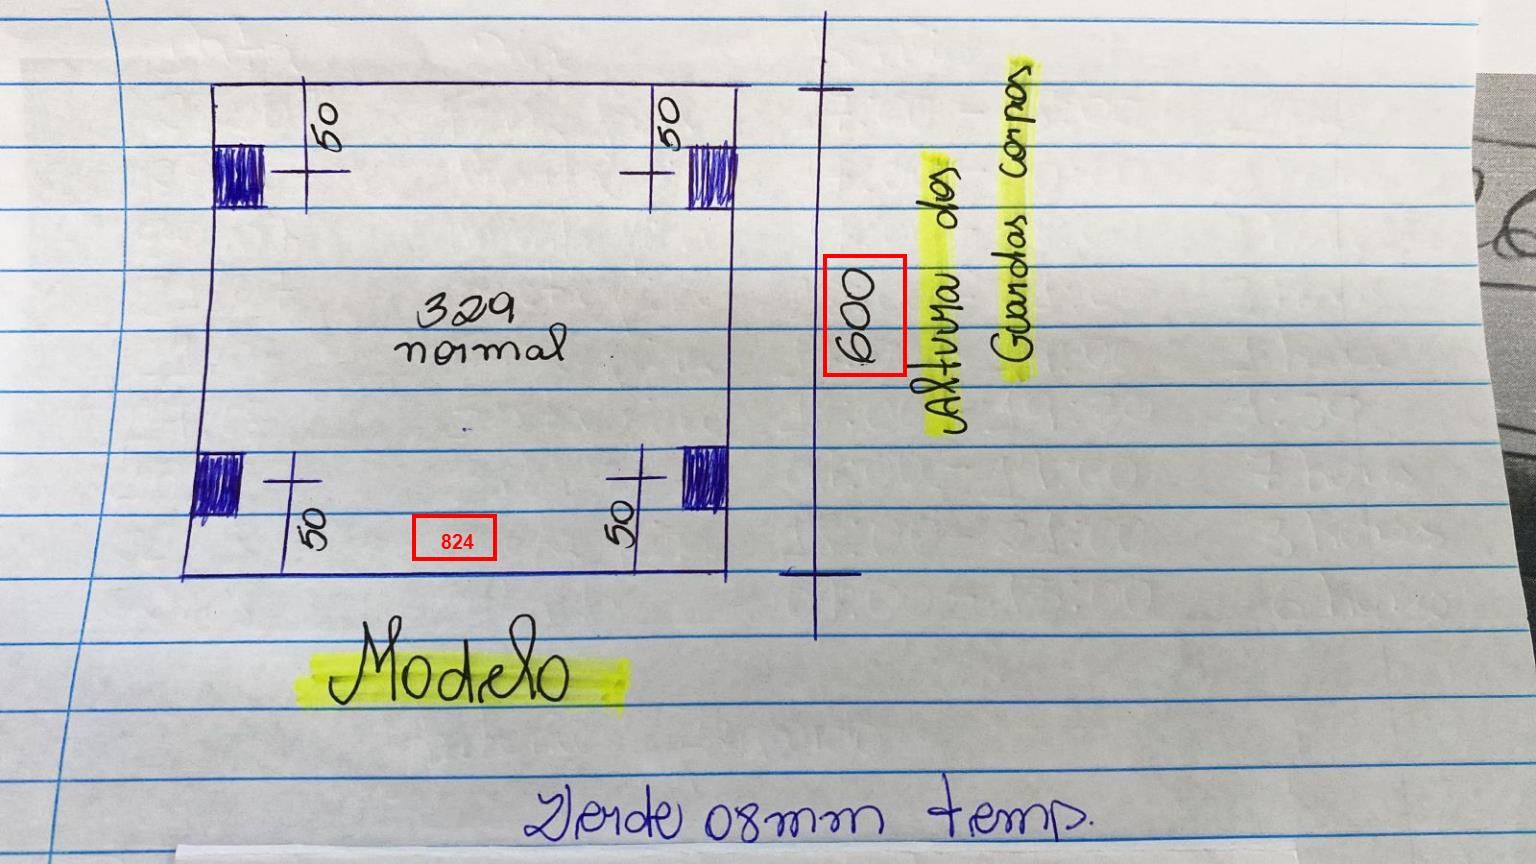 50
50
329
normal
600
Altura dos
Guardas corpos
50
824
50
Modelo
Verde 08mm temp.